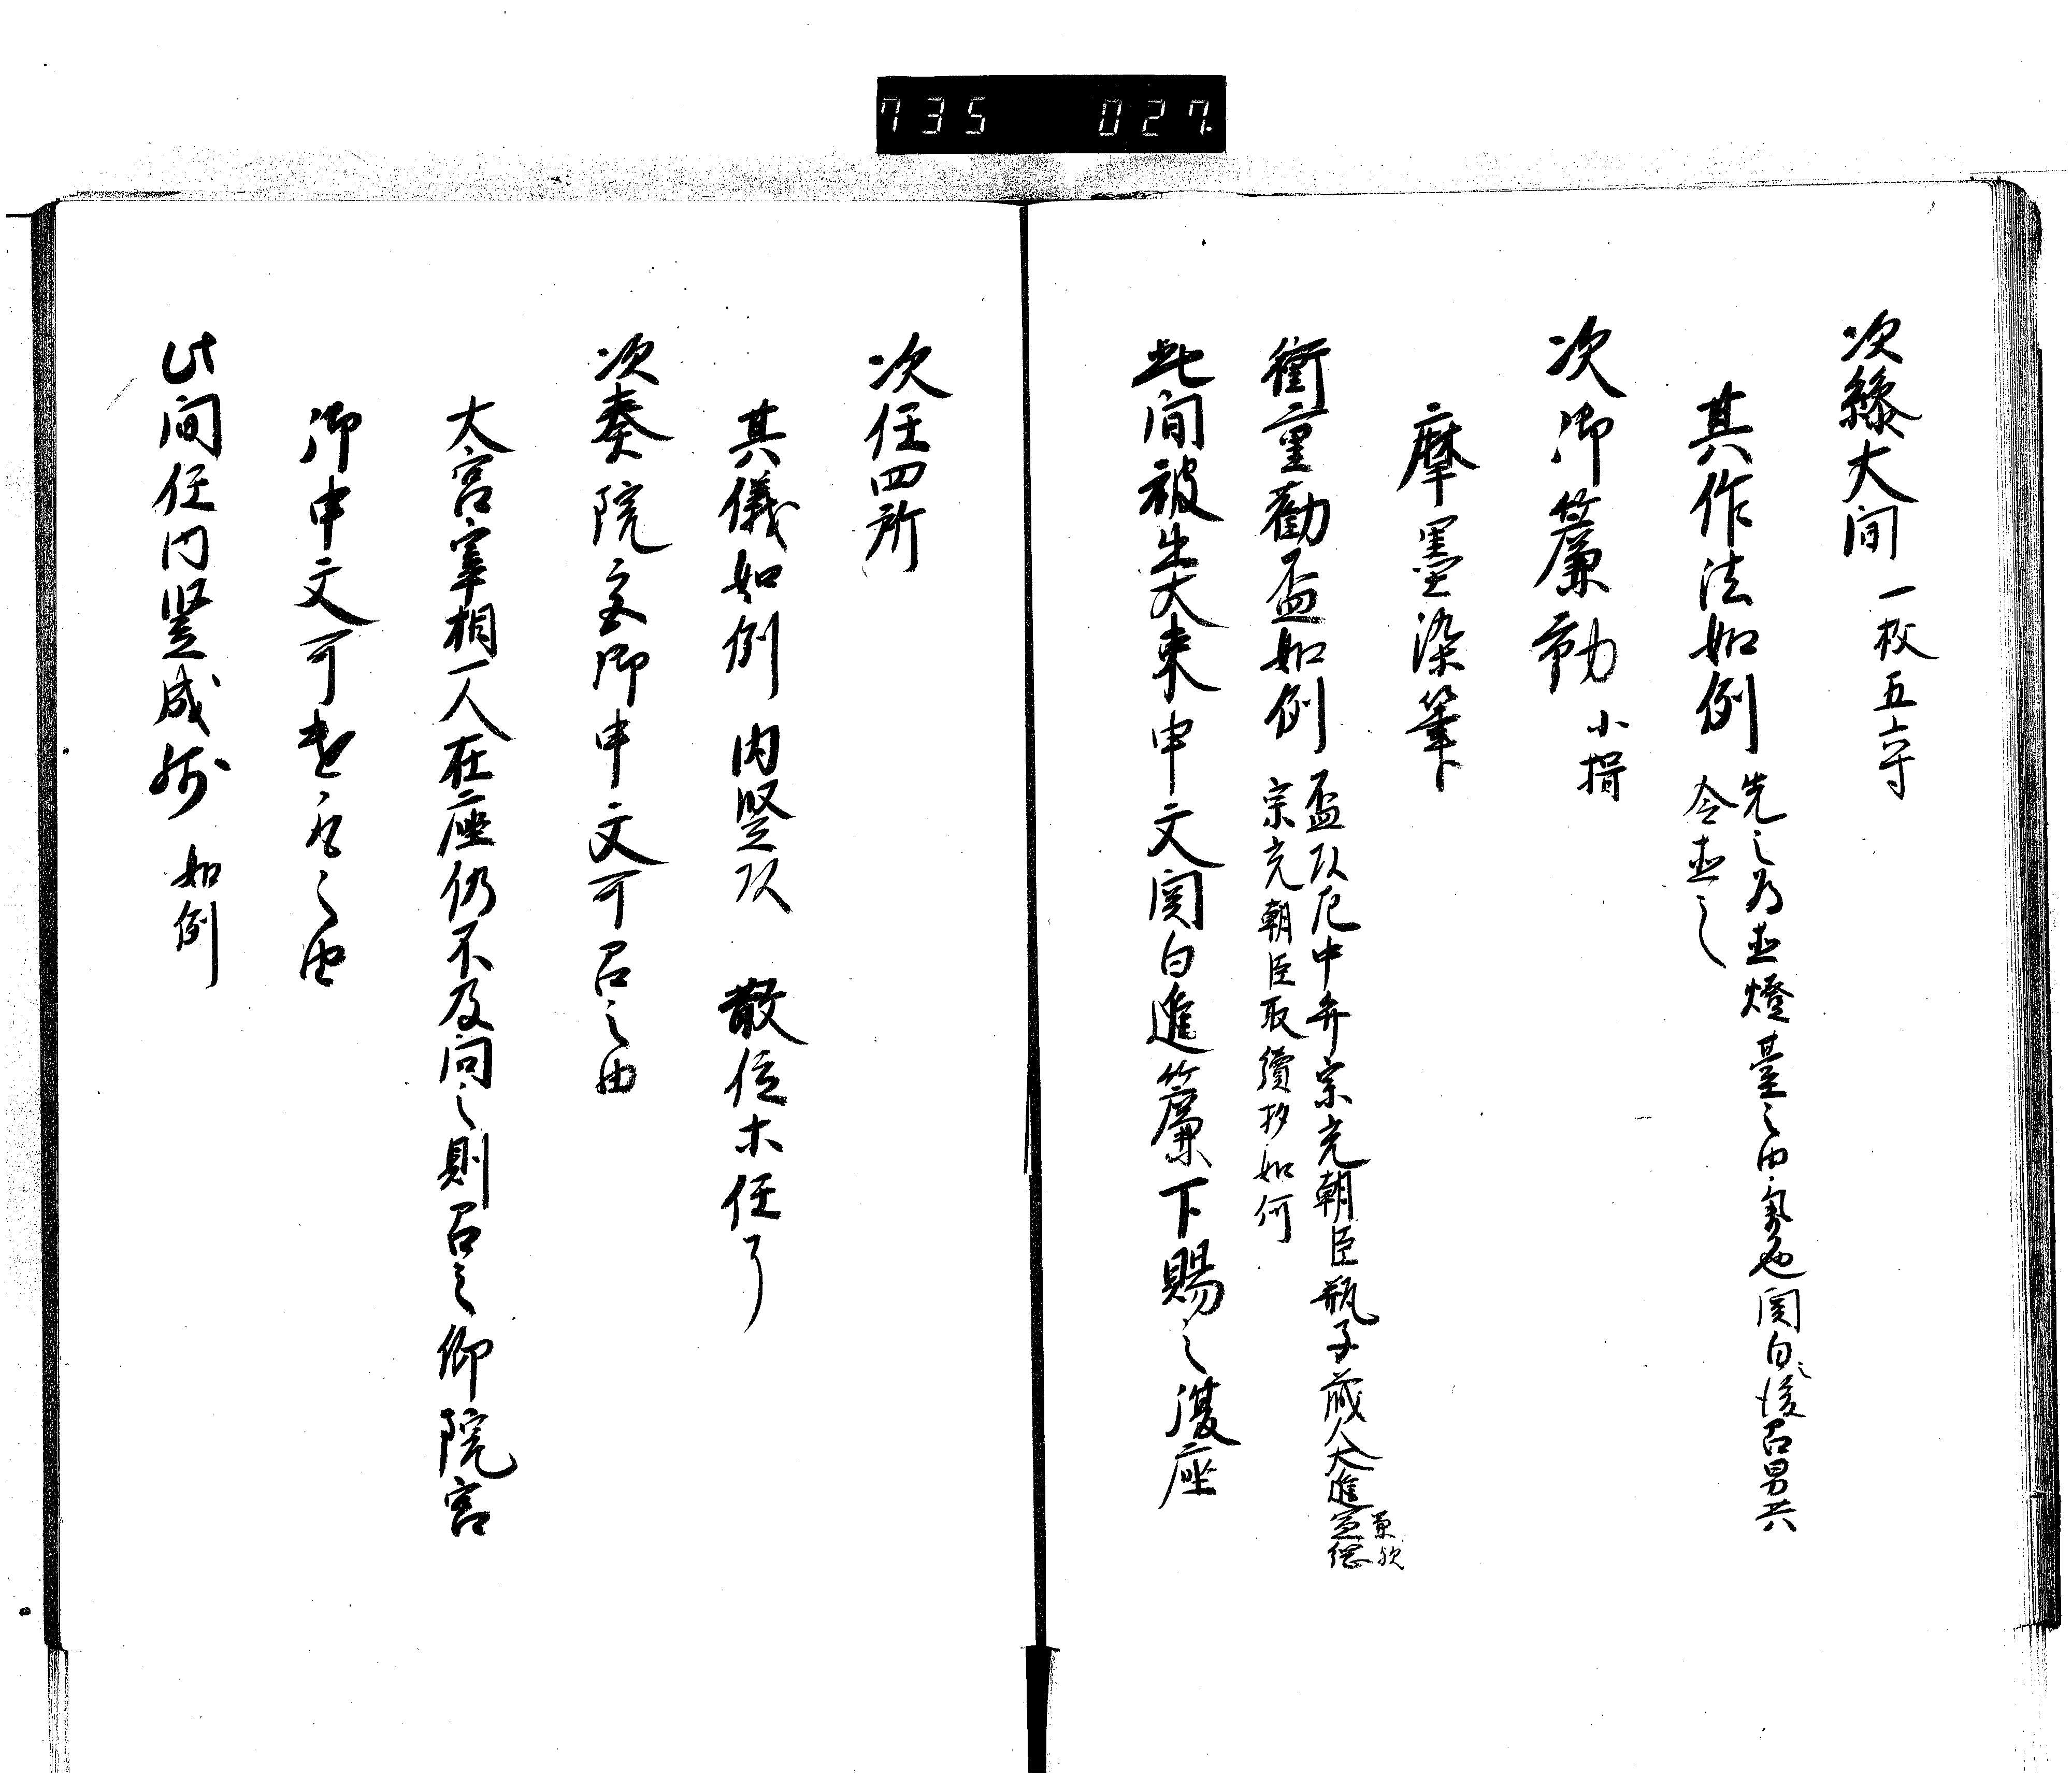 735 027.
次繰大間 一枚五六寸
其作法如例 先之為立燈臺之由氣色関白之後召男共
令立之
次御簾勅 小揖
摩墨染筆
衝重勧盃如例 盃頭左中弁宗光朝臣瓶子蔵人大進
宗光朝臣取續杓如何
此間被出大束申文関白進簾下賜之復座
次任四所
其儀如例 内竪頭 散位木任了
次奏院宮御申文可召之由
大宮宰相一人在座仍不及問之則召之仰院宮
御申文可進之由
此間任内竪成 如例